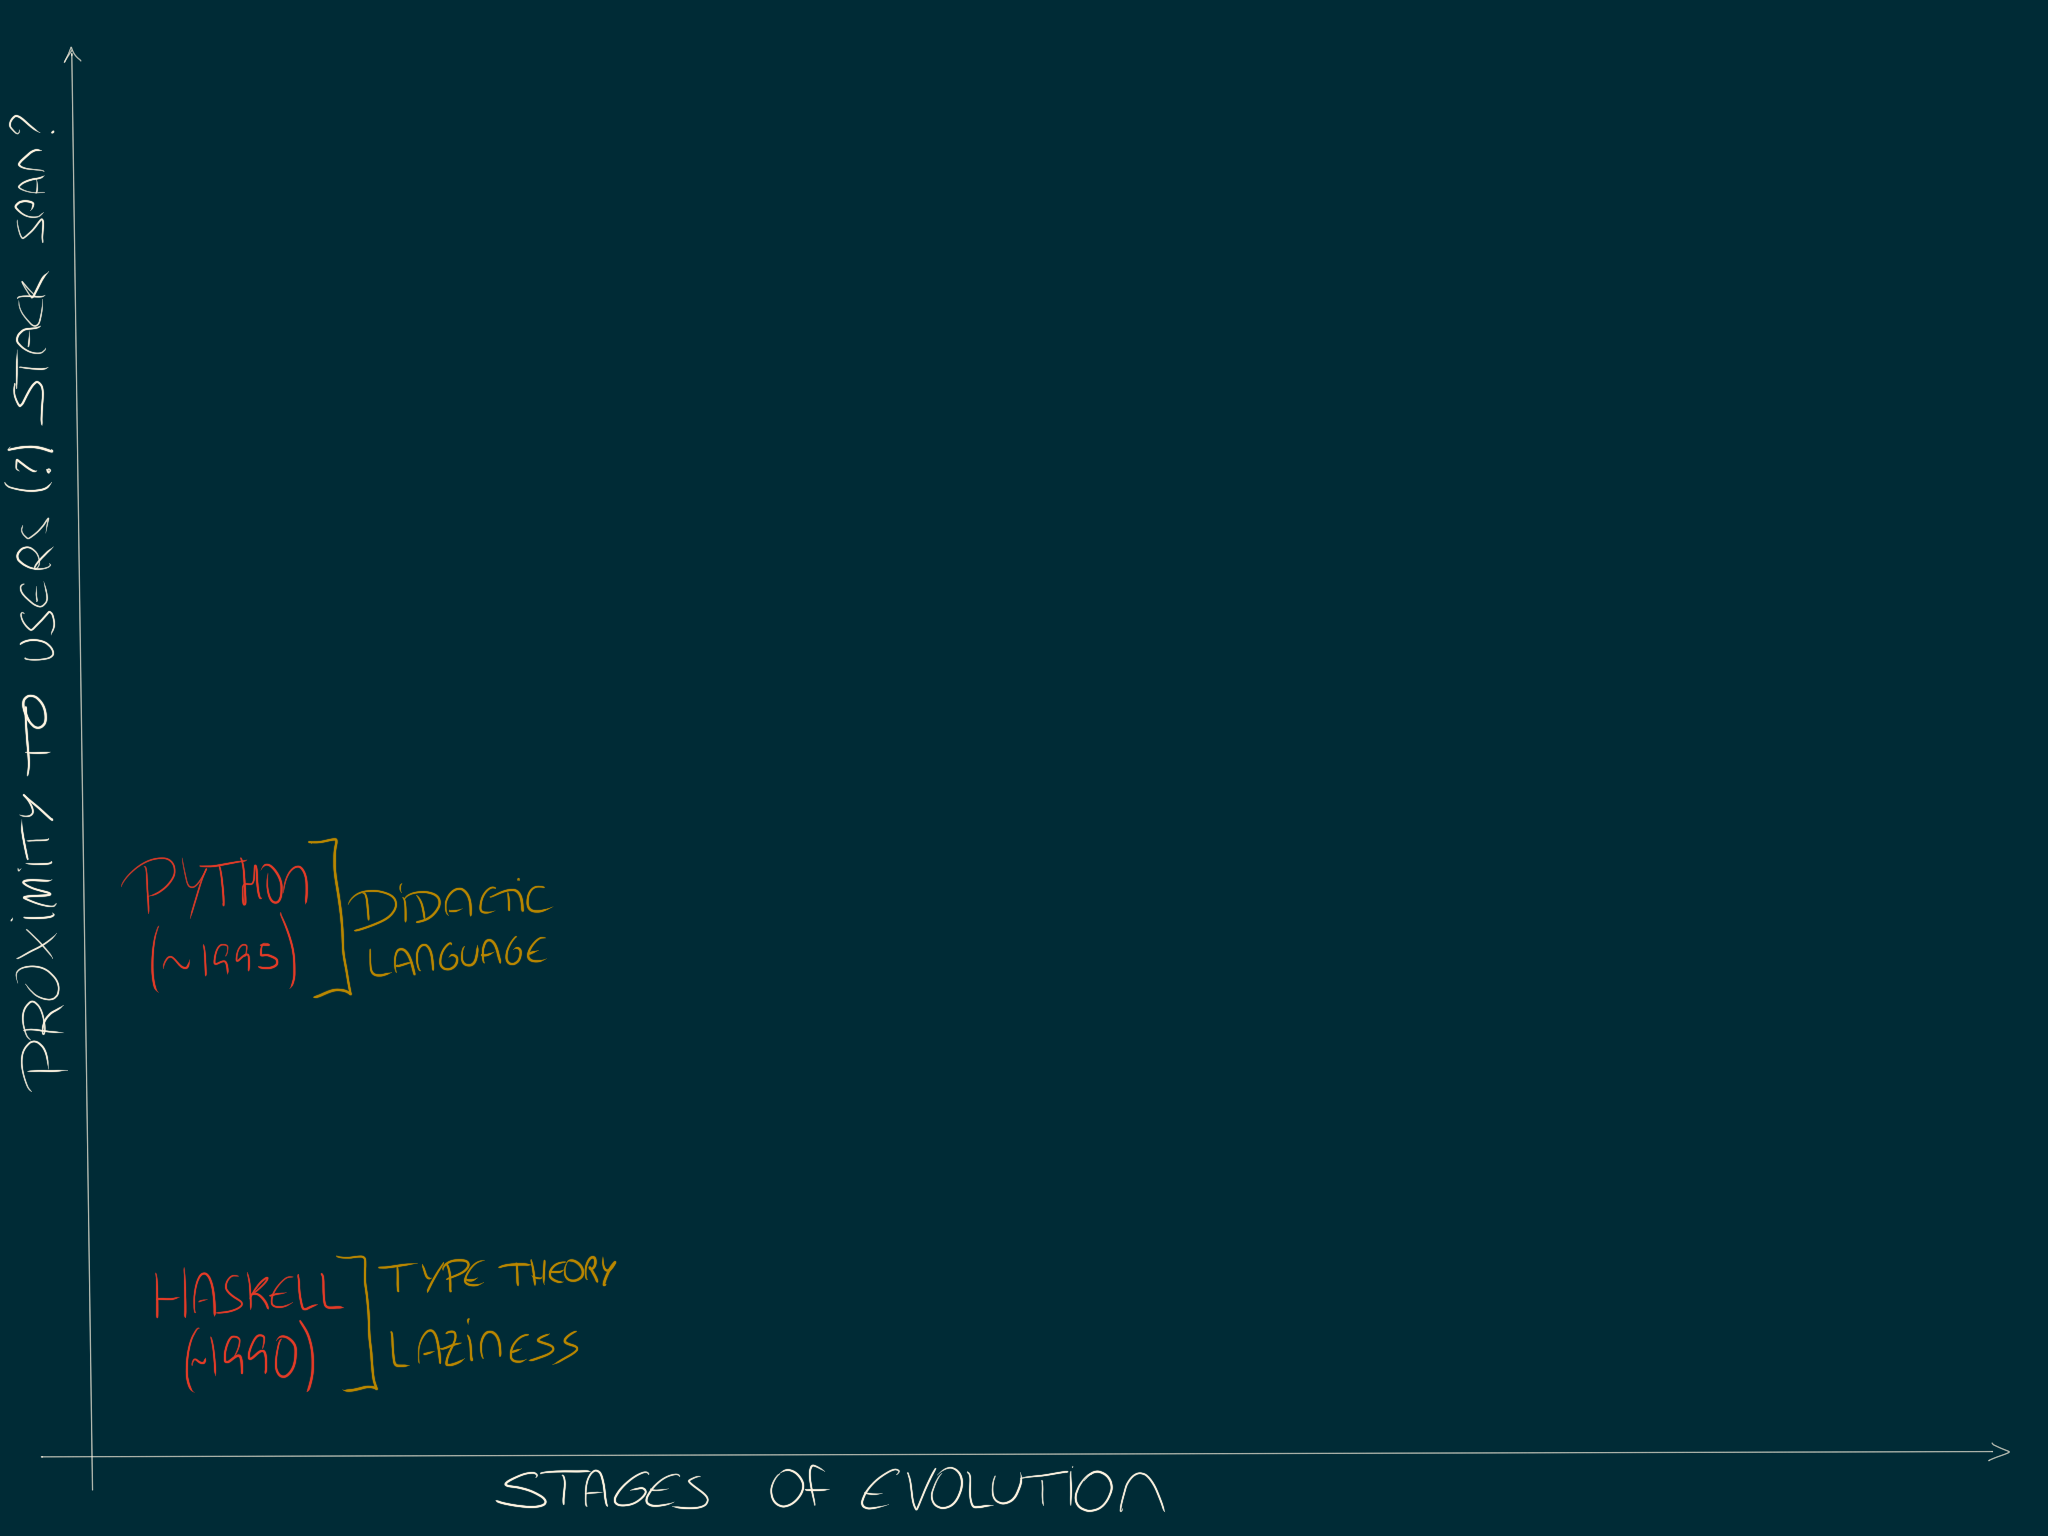 PROXIMITY TO USERS (?) STACK SPAN?
PYTHON
(~1995)
DIDACTIC
LANGUAGE
HASKELL
(~1990)
TYPE THEORY
LAZINESS
STAGES OF EVOLUTION